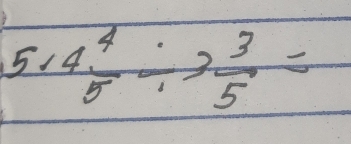 5. 4 4/5 ÷ 3 3/5 =